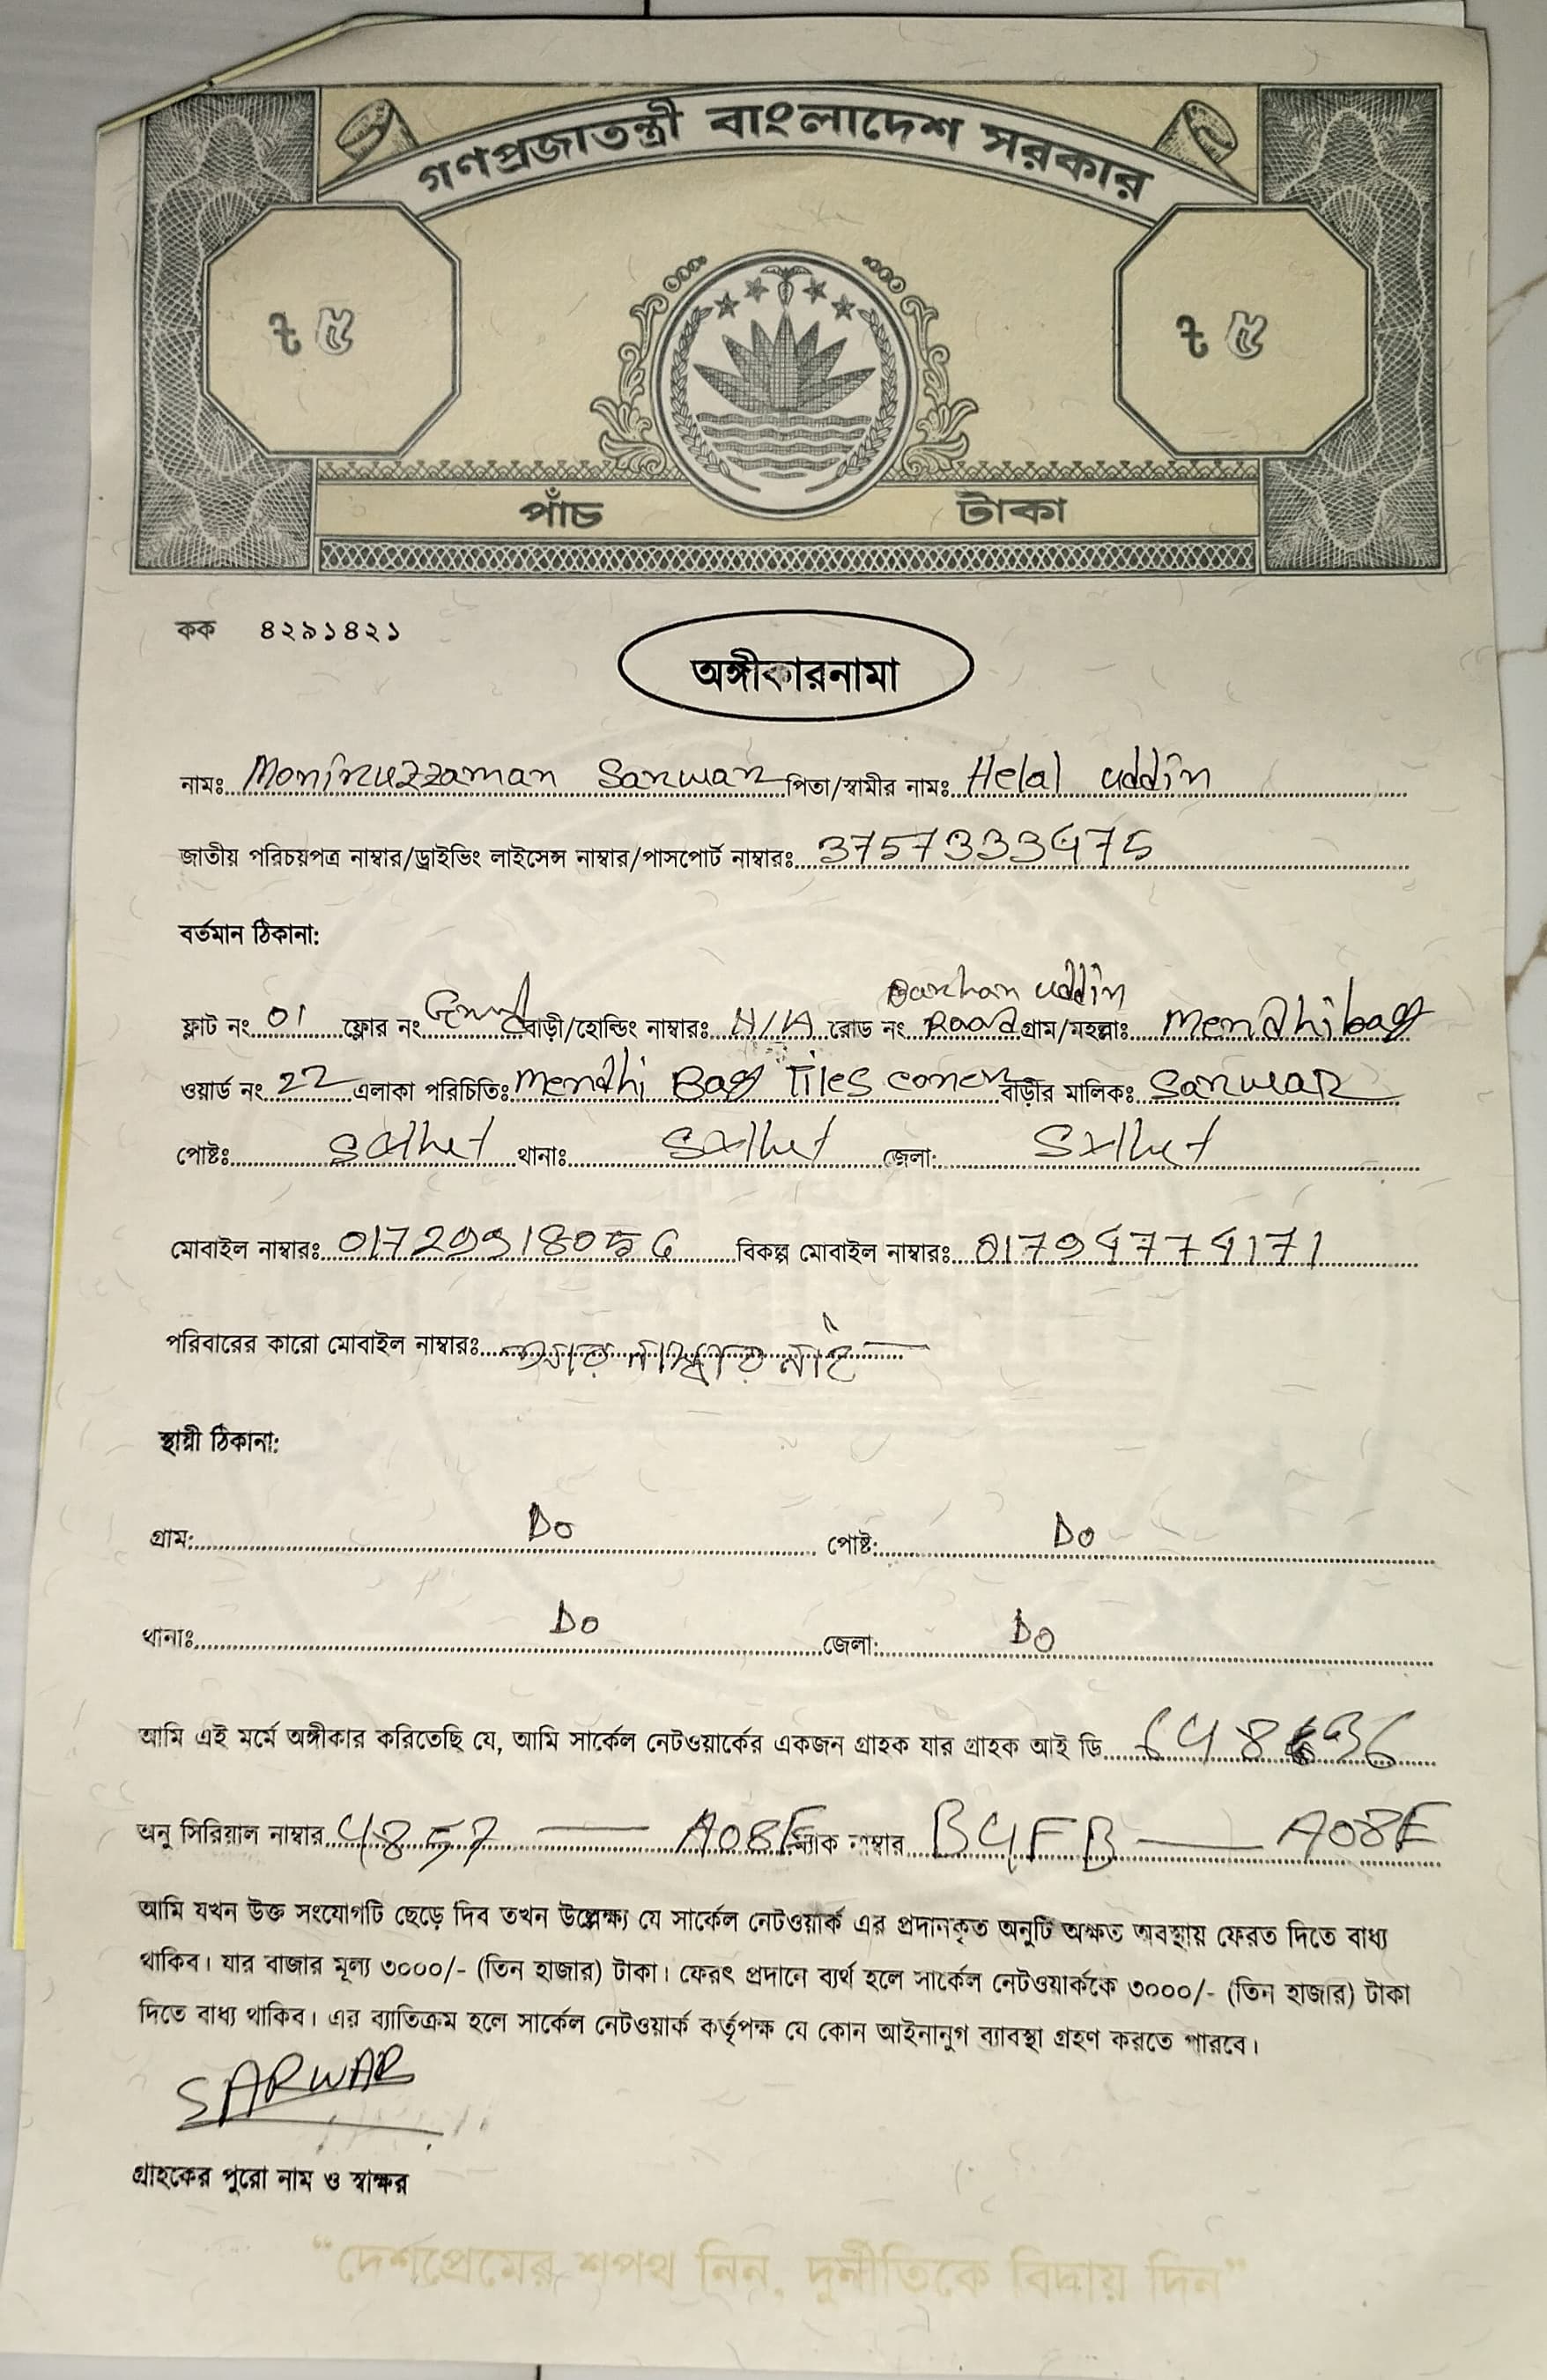 গণপ্রজাতন্ত্রী বাংলাদেশ সরকার
৳ ৫ ৳ ৫
পাঁচ টাকা
কক ৪২৯১৪২১
অঙ্গীকারনামা
নামঃ Moniruzzaman Sarwar পিতা/স্বামীর নামঃ Helal uddin
জাতীয় পরিচয়পত্র নাম্বার/ড্রাইভিং লাইসেন্স নাম্বার/পাসপোর্ট নাম্বারঃ 3757333475
বর্তমান ঠিকানা:
uddin
ফ্লাট নং 01 ফ্লোর নং বাড়ী/হোল্ডিং নাম্বারঃ N/A রোড নং Road গ্রাম/মহল্লাঃ Mendhibag
ওয়ার্ড নং 22 এলাকা পরিচিতিঃ Mendhi Bag Tiles বাড়ীর মালিকঃ Sarwar
পোষ্টঃ Sylhet থানাঃ Sylhet জেলা: Sylhet
মোবাইল নাম্বারঃ বিকল্প মোবাইল নাম্বারঃ 01794774171
পরিবারের কারো মোবাইল নাম্বারঃ আর নাম্বার নাই
স্থায়ী ঠিকানা:
গ্রাম: Do পোষ্ট: Do
থানাঃ Do জেলা: Do
আমি এই মর্মে অঙ্গীকার করিতেছি যে, আমি সার্কেল নেটওয়ার্কের একজন গ্রাহক যার গ্রাহক আই ডি
অনু সিরিয়াল নাম্বার 4857 — A08E ম্যাক নাম্বার B4FB — A08E
আমি যখন উক্ত সংযোগটি ছেড়ে দিব তখন উল্লেক্ষ্য যে সার্কেল নেটওয়ার্ক এর প্রদানকৃত অনুটি অক্ষত অবস্থায় ফেরত দিতে বাধ্য
থাকিব। যার বাজার মূল্য ৩০০০/- (তিন হাজার) টাকা। ফেরৎ প্রদানে ব্যর্থ হলে সার্কেল নেটওয়ার্ককে ৩০০০/- (তিন হাজার) টাকা
দিতে বাধ্য থাকিব। এর ব্যাতিক্রম হলে সার্কেল নেটওয়ার্ক কর্তৃপক্ষ যে কোন আইনানুগ ব্যাবস্থা গ্রহণ করতে পারবে।
SARWAR
গ্রাহকের পুরো নাম ও স্বাক্ষর
“দেশপ্রেমের শপথ নিন, দুর্নীতিকে বিদায় দিন”